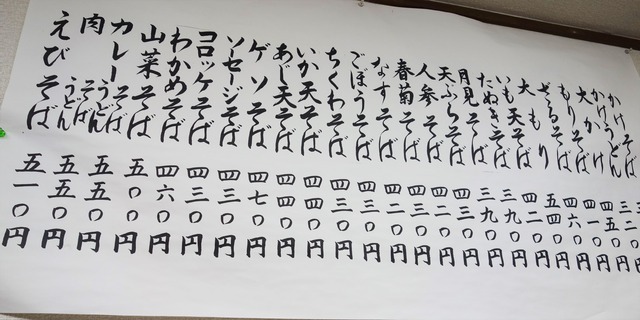 かけそば
かけうどん 三二〇円
大かけ 四五〇円
もりそば 四一〇円
ざるそば 四六〇円
大もり 五四〇円
いも天そば 四二〇円
たぬきそば 三九〇円
月見そば 三九〇円
天ぷらそば 四三〇円
人参そば 四二〇円
春菊そば 四三〇円
なすそば 四二〇円
ごぼうそば 四三〇円
ちくわそば 四三〇円
いか天そば 四四〇円
あじ天そば 四四〇円
ゲソそば 四七〇円
ソーセージそば 四三〇円
コロッケそば 四三〇円
わかめそば 四六〇円
山菜そば 五〇〇円
カレーそばうどん 五五〇円
肉そばうどん 五五〇円
えびそば 五一〇円